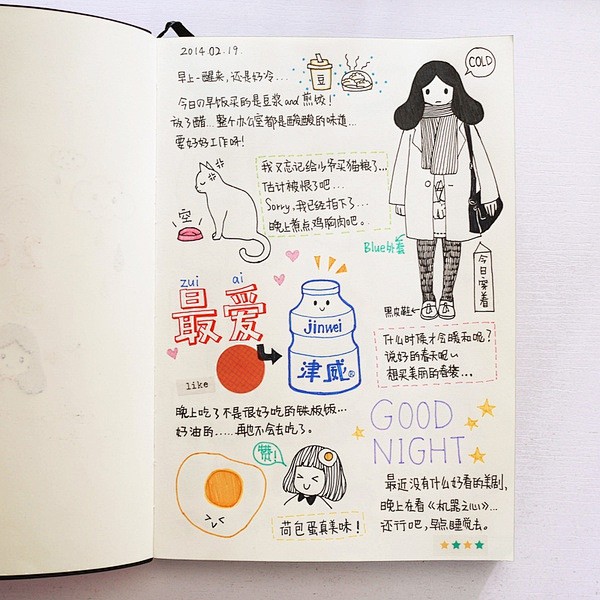 2014.02.19.
早上一醒来,还是好冷...
豆
COLD
今日の早饭买的是豆浆and煎饺!
放了醋...整个办公室都是酸酸的味道...
要好好工作呀!
我又忘记给少爷买猫粮了...
估计被恨了吧...
Sorry,我已经拍下了...
晚上煮点鸡胸肉吧。
空
Blue外套
今日穿着
黑皮鞋
zui ai
最爱
jinwei
津威®
like
什么时候才会暖和呢?
说好的春天呢~
想买美丽的春装...
晚上吃了不是很好吃的铁板饭...
好油的.....再也不会去吃了。
GOOD
NIGHT
赞!
荷包蛋真美味!
最近没有什么好看的美剧,
晚上在看《机器之心》...
还行吧,早点睡觉去。